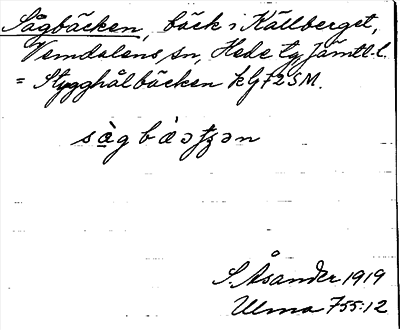 Sågbäcken, bäck i Källberget,
Vemdalens sn, Hede tg, Jämtl. l.
= Stygghålbäcken kg 72 SM.
Såsander 1919
Ulma 755:12